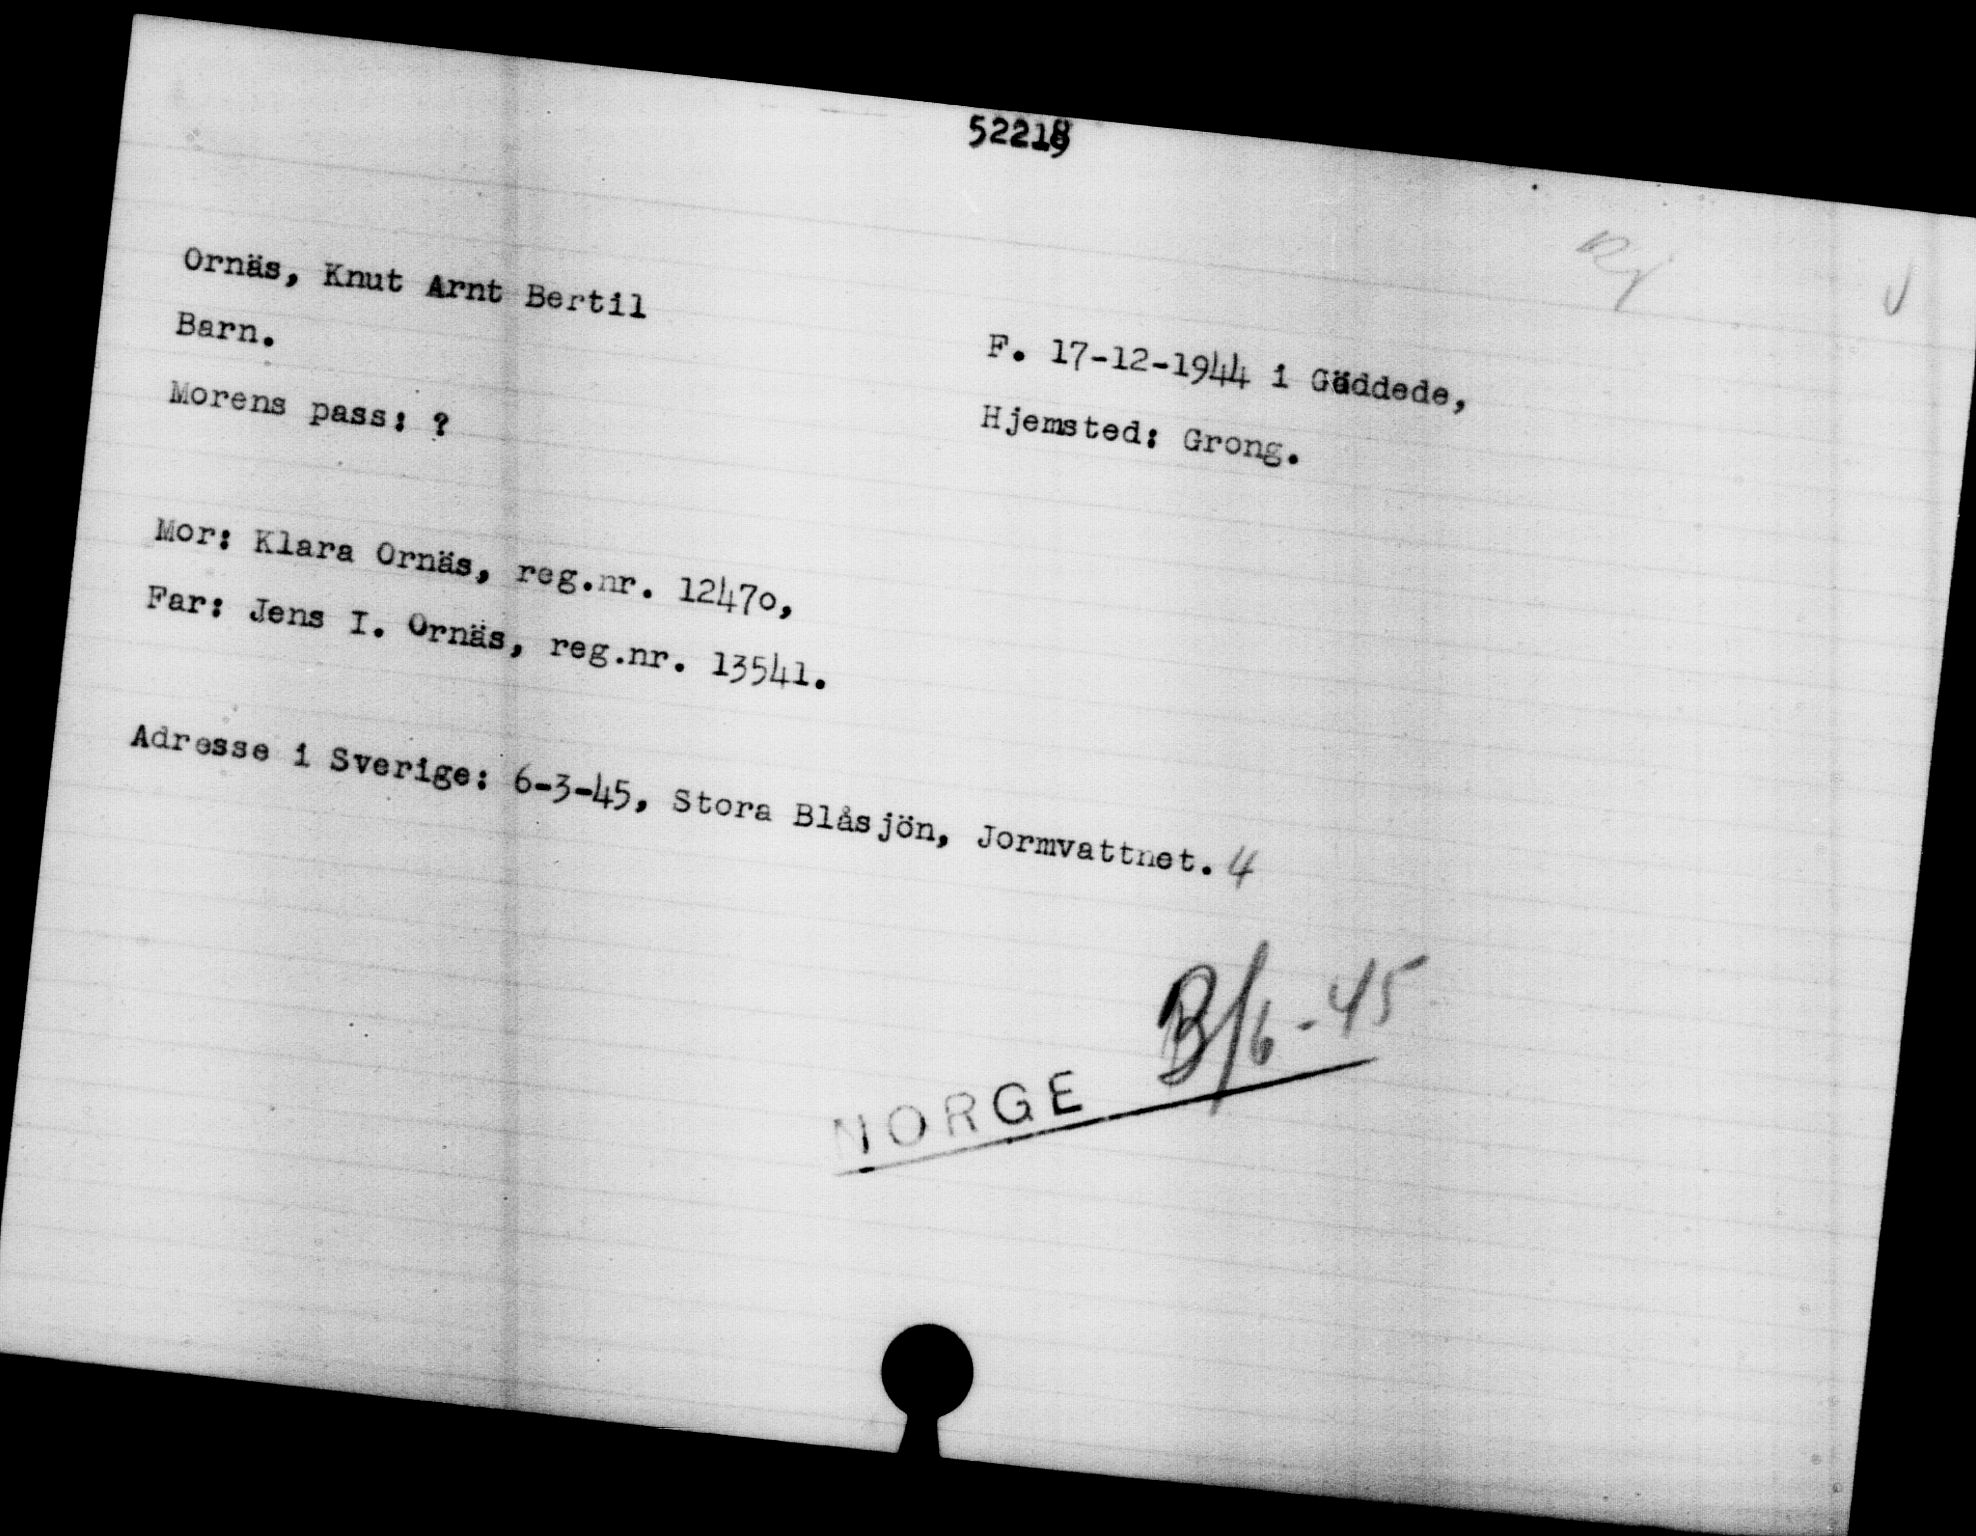 Ornäs, Knut Arnt Bertil
Barn.
Morens pass: ?
F. 17-12-1944 i Gäddede,
Hjemsted: Grong.
Mor: Klara Ornäs, reg.nr. 12470,
Far: Jens I. Ornäs, reg.nr. 13541.
Adresse i Sverige: 6-3-45, Stora Blåsjön, Jormvattnet. 4
NORGE